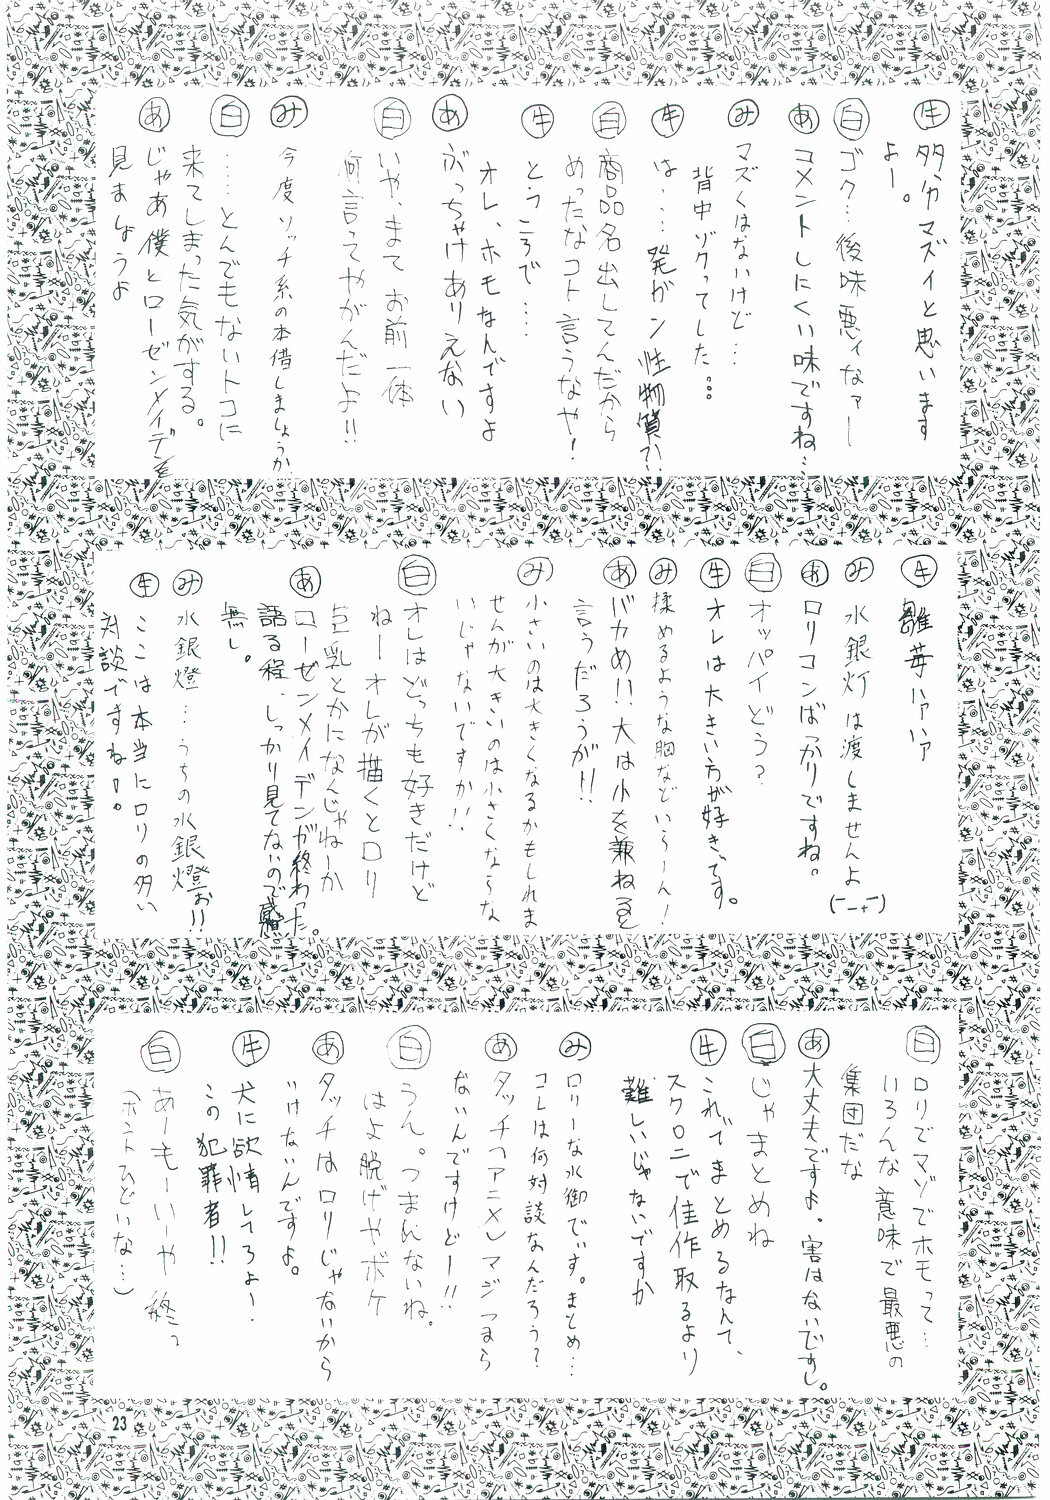 牛 多分マズイと思います
よー。
白 ゴク…後味悪ィなァー
あ コメントしにくい味ですね…
み マズくはないけど…
背中ゾクってした…
牛 は…発ガン性物質で…
白 商品名出してんだから
めったなコト言うなや！
牛 とうころで……
オレ、ホモなんですよ
あ ぶっちゃけありえない
白 いや、まてお前一体
何言ってやがんだよ!!
み 今度ソッチ系の本借しましょうか
白 ……とんでもないトコに
来てしまった気がする。
あ じゃあ僕とローゼンメイデンを
見ましょうよ
牛 雛苺ハァハァ
み 水銀灯は渡しませんよ
あ ロリコンばっかりですね。
白 オッパイどう？
牛 オレは大きい方が好きです。
み 揉めるような胸などいらーん！
あ バカめ!!大は小を兼ねると
言うだろうが!!
み 小さいのは大きくなるかもしれま
せんが大きいのは小さくならな
いじゃないですか!!
白 オレはどっちも好きだけど
ねー オレが描くとロリ
巨乳とかになんじゃねーか
あ ローゼンメイデンが終わった。
語る程、しっかり見てないので感想
無し。
み 水銀燈…うちの水銀燈ぉ!!
牛 ここは本当にロリの多い
対談ですねー。
白 ロリでマゾでホモって…
いろんな意味で最悪の
集団だな
あ 大丈夫ですよ。害はないですし。
白 じゃまとめね
牛 これでまとめるなんて、
スクロニで佳作取るより
難しいじゃないですか
み ロリーな水御でぃす。まとめ…
コレは何対談なんだろう？
あ タッチ(アニメ)マジつまら
ないんですけどー!!
白 うん。つまんないね。
はよ脱げやボケ
あ タッチはロリじゃないから
いけないんですよ。
牛 犬に欲情してろよー
この犯罪者!!
白 あーもーいーや 終っ
(ホントひどいな…)
23